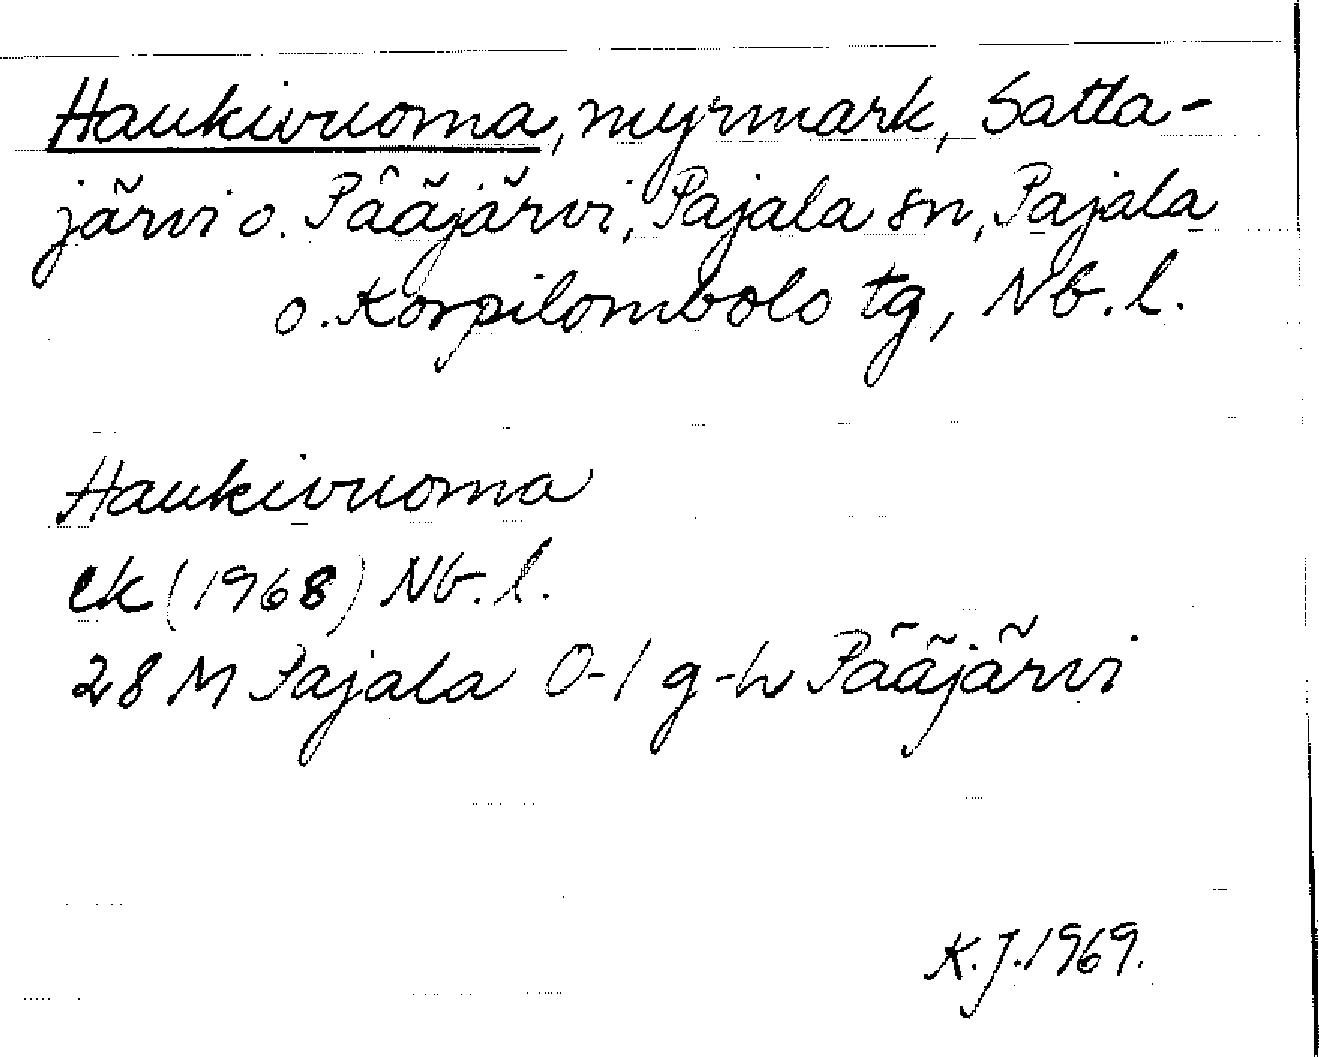 Haukivuoma, myrmark, Satta-
järvi o. Pääjärvi, Pajala sn, Pajala
o. Korpilombolo tg, Nb. l.
Haukivuoma
ek (1968) Nb. l.
28 M Pajala 0-1 g-h Pääjärvi
K.J. 1969.